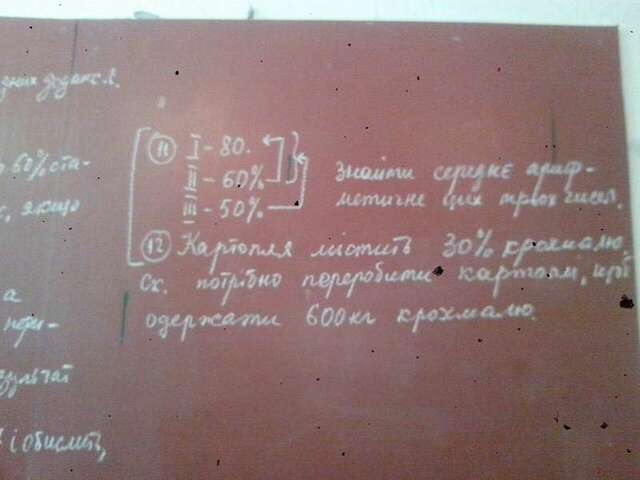 даних додакс.
о 60% ста-
, якщо
а
пери-
зультат
і обчисліть,
11 I - 80.
II - 60%
III - 50%
Знайти середнє ариф-
метичне цих трьох чисел.
12 Картопля містить 30% крохмалю.
Ск. потрібно переробити картоплі, щоб
одержати 600кг крохмалю.